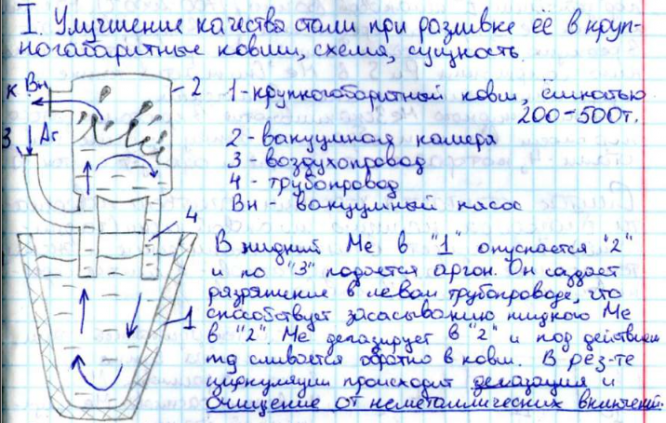 I. Улучшение качества стали при разливке её в круп-
ногабаритные ковши, схема, сущность.
к Вн
2
1 - крупногабаритный ковш, ёмкостью
200-500т.
3
Ar
2 - вакуумная камера
3 - воздухопровод
4 - трубопровод
Вн - вакуумный насос
4
В жидкий Ме в "1" опускается "2"
и по "3" подается аргон. Он создает
разряжение в левом трубопроводе, что
1
способствует засасыванию жидкого Ме
в "2". Ме дегазирует в "2" и под действием
mg сливается обратно в ковш. В рез-те
циркуляции происходит дегазация и
очищение от неметаллических включений.